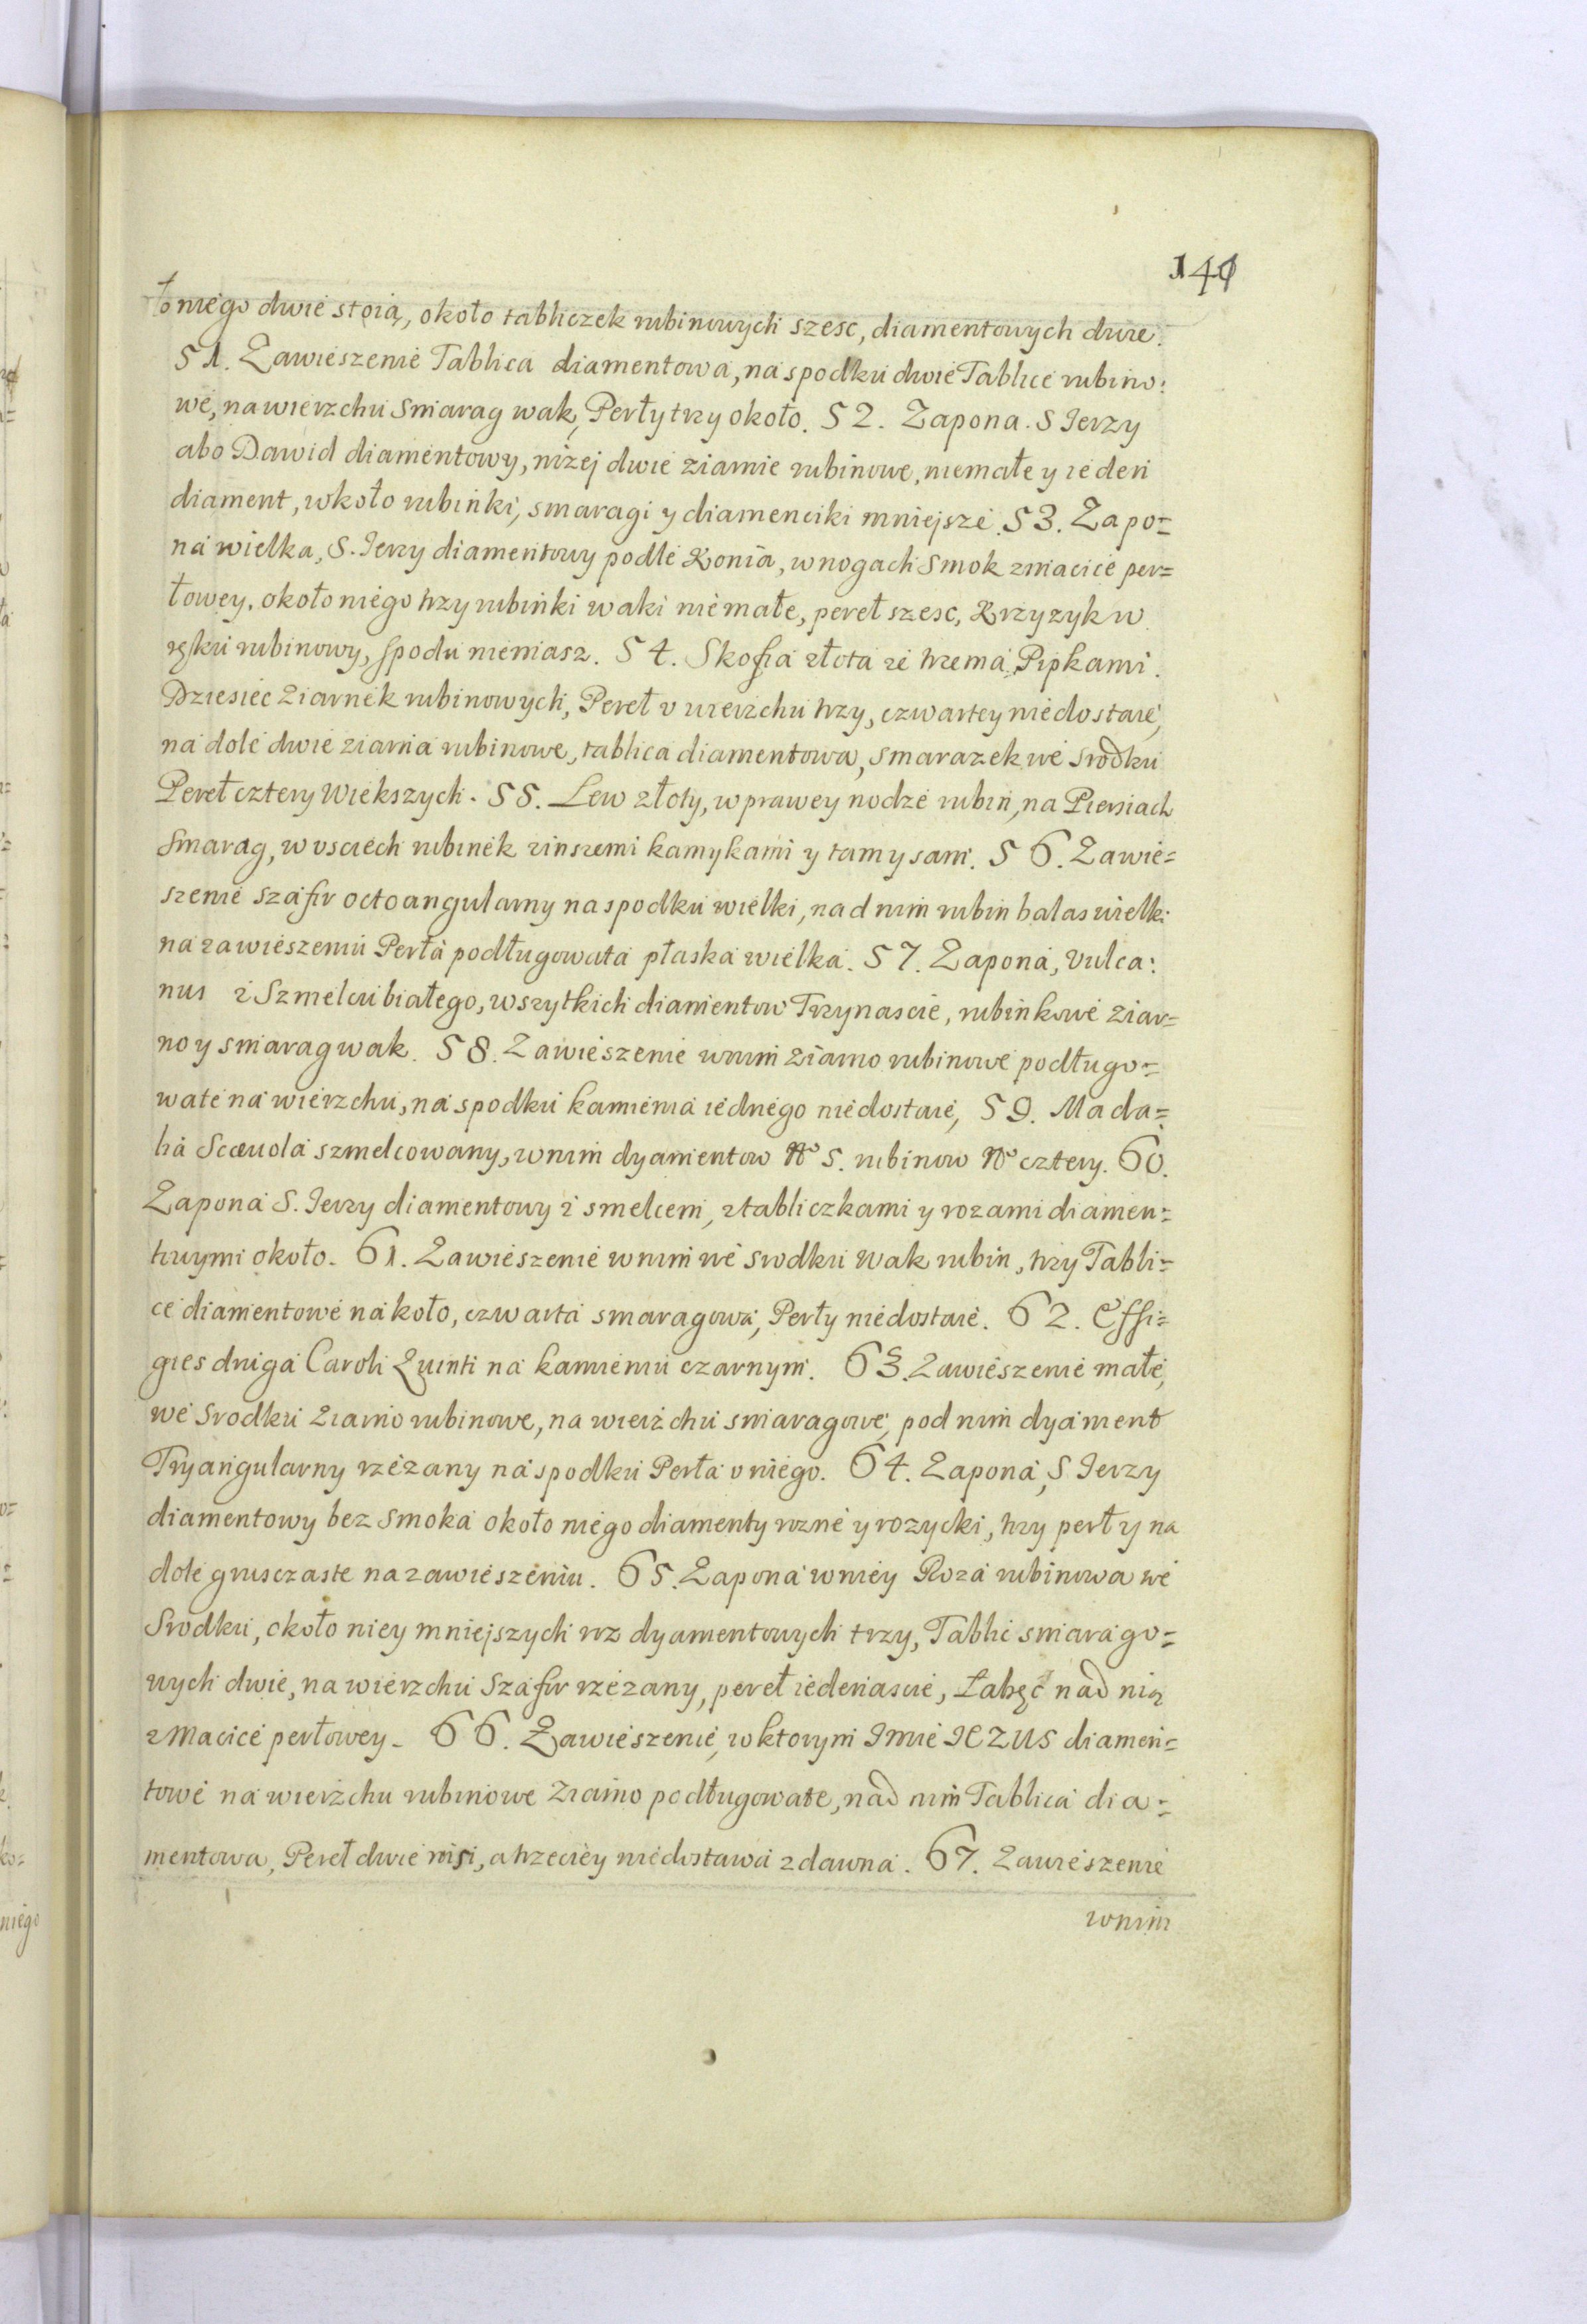 141
ło niego dwie stoią, około tabliczek rubinowych szesc, diamentowych dwie.
51. Zawieszenie Tablica diamentowa, na spodku dwie Tablice rubino:
we, na wierzchu Smarag wak, Perły trzy około. 52. Zapona. S Jerzy
abo Dawid diamentowy, niżej dwie ziarnie rubinowe, niemałe y ieden
diament, wkoło rubinki, smaragi y diamenciki mniejsze. 53. Zapo=
na wielka, S. Jerzy diamentowy podle Konia, w nogach Smok z macice per=
łowey, około niego trzy rubinki waki niemałe, pereł szesc, Krzyzyk w
ręku rubinowy, spodu niemasz. 54. Skofia złota ze trzema Pipkami.
Dziesięc Ziarnek rubinowych, Pereł v wierzchu trzy, czwartey niedostaie,
na dole dwie ziarna rubinowe, tablica diamentowa, smarazek we srodku
Pereł cztery Większych. 55. Lew złoty, w prawey nodze rubin, na Piersiach
Smarag, w vsciech rubinek z inszemi kamykami y tam y sam. 56. Zawie=
szenie szafir octoangularny na spodku wielki, nad nim rubin balas wielki
na zawieszeniu Perła podługowata płaska wielka. 57. Zapona, Vulca:
nus z Szmelcu białego, wszytkich diamentow Trzynascie, rubinkowe Ziar=
no y smarag wak. 58. Zawieszenie w nim ziarno rubinowe podługo=
wate na wierzchu, na spodku kamienia iednego niedostaie, 59. Mada=
lia Scæuola szmelcowany, w nim dyamentow No 5. rubinow No cztery. 60.
Zapona S. Jerzy diamentowy z smelcem, z tabliczkami y rozami diamen=
towymi około. 61. Zawieszenie w nim we srodku wak rubin, trzy Tabli=
ce diamentowe na koło, czwarta smaragowa, Perły niedostaie. 62. Effi=
gies druga Caroli Quinti na kamieniu czarnym. 63. Zawieszenie małe,
we Srodku Ziarno rubinowe, na wierzchu smaragowe, pod nim dyament
Tryangularny rzezany na spodku Perła v niego. 64. Zapona, S Jerzy
diamentowy bez Smoka około niego diamenty rozne y rozycki, trzy perły na
dole grusczaste na zawieszeniu. 65. Zapona w niey Roza rubinowa we
Srodku, około niey mniejszych roz dyamentowych trzy, Tablic smarago=
wych dwie, na wierzchu Szafir rzezany, pereł iedenascie, Łabęć nad nią
z Macice perłowey. 66. Zawieszenie, w ktorym Imie IEZUS diamen=
towe na wierzchu rubinowe Ziarno podługowate, nad nim Tablica dia=
mentowa, Pereł dwie wisi, a trzeciey niedostawa z dawna. 67. Zawieszenie
w nim